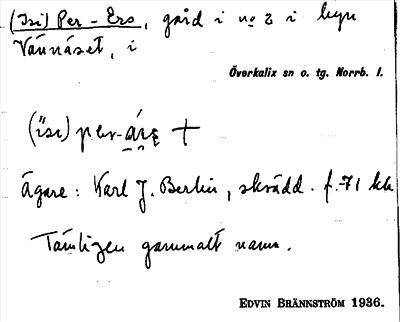 (Isi) Per-Ers, gård i nº 2 i byn
Vännäset, i
Överkalix sn o. tg. Norrb. l.
(ïsɩ) pɛr-áṛs̩ +
Ägare: Karl J. Berlin, skrädd. f. 71
Tämligen gammalt namn.
EDVIN BRÄNNSTRÖM 1936.